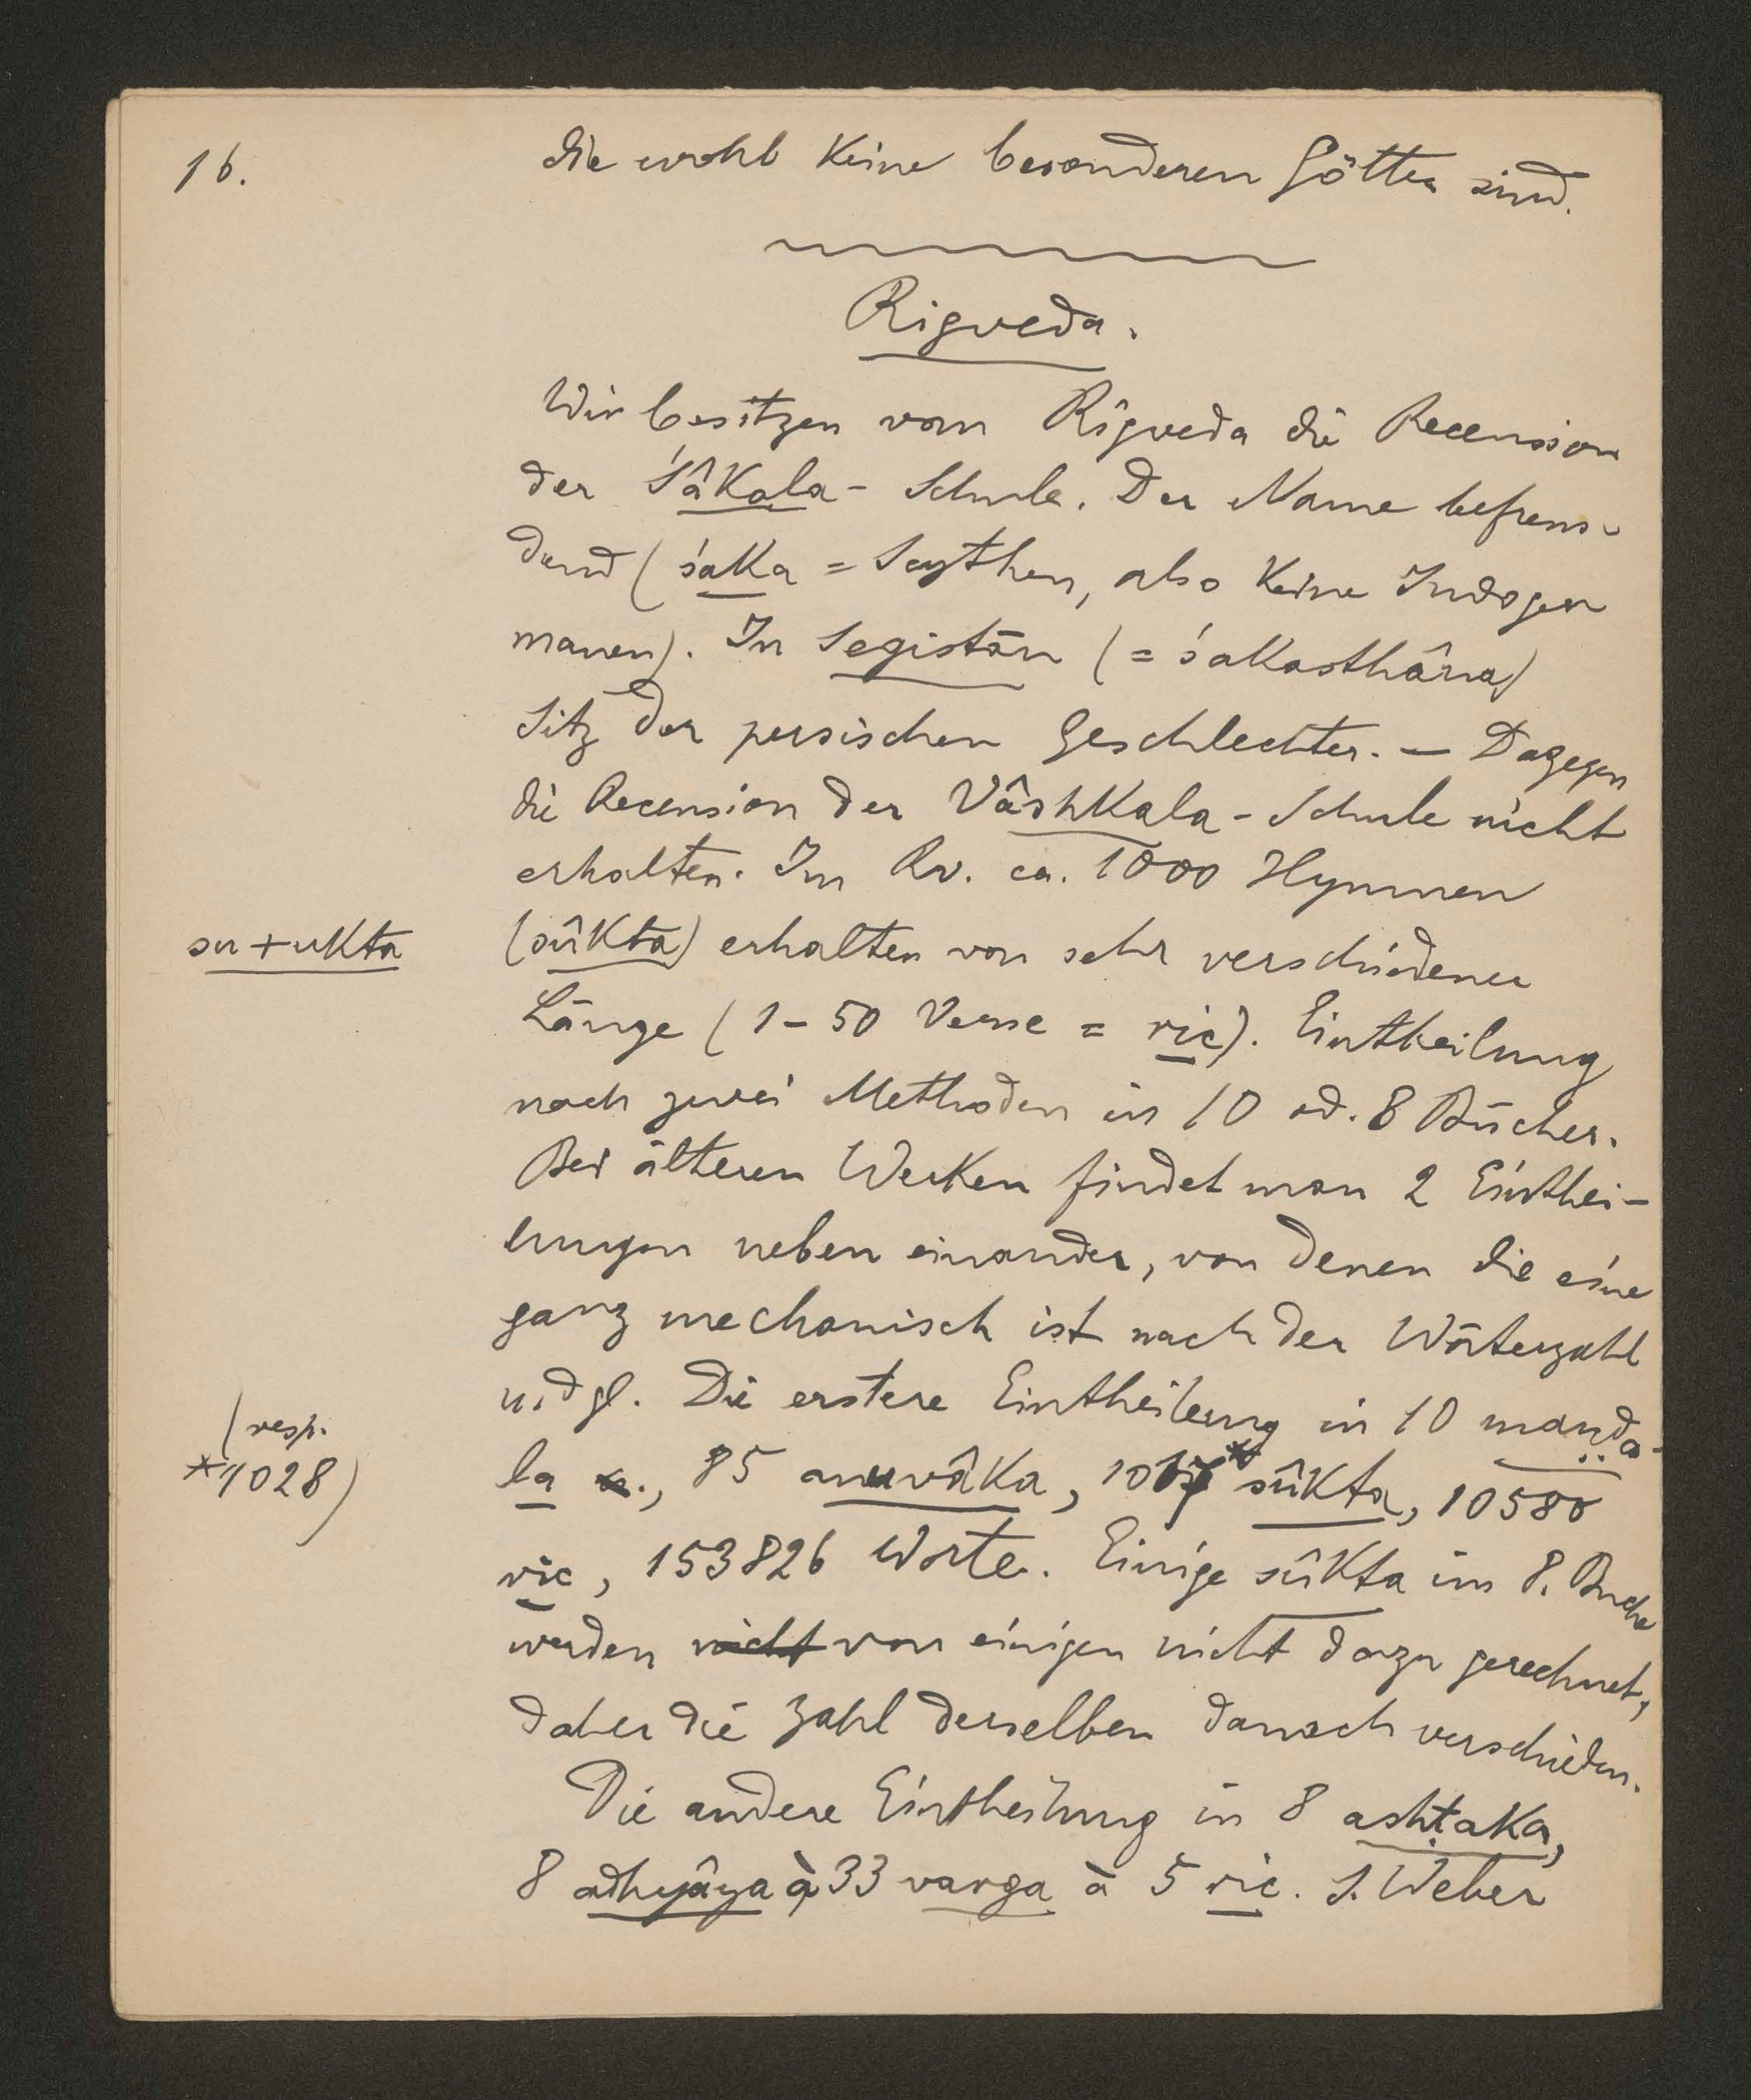 16.
die wohl keine besonderen Götter sind.
Rigveda.
Wir besitzen vom Rigveda die Recension
der Śâkala - Schule. Der Name befrem-
dend (śaka = Scythen, also keine Indoger
manen). In Segistān (= śakasthâna)
Sitz der persischen Geschlechter. — Dagegen
die Recension der Vâshkala - Schule nicht
erhalten. Im Rv. ca. 1000 Hymnen
su + ukta
(sûkta) erhalten von sehr verschiedener
Länge (1 - 50 Verse = ric). Eintheilung
nach zwei Methoden in 10 od. 8 Bücher.
Bei älteren Werken findet man 2 Einthei-
lungen neben einander, von denen die eine
ganz mechanisch ist nach der Wörterzahl
u. dgl. Die erstere Eintheilung in 10 maṇḍa-
(resp.
*1028)
la, 85 anuvâka, 1017* sûkta, 10580
ric, 153826 Worte. Einige sûkta im 8. Buche
werden nicht von einigen nicht dazu gerechnet,
daher die Zahl derselben danach verschieden.
Die andere Eintheilung in 8 ashṭaka,
8 adhyâya à 33 varga à 5 ric. S. Weber